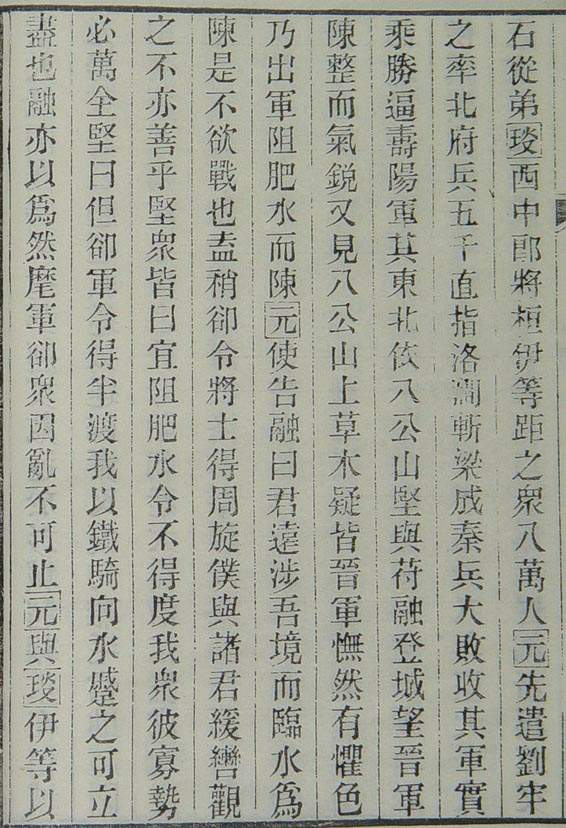 石從弟琰西中郎將桓伊等距之衆八萬人元先遣劉牢
之率北府兵五千直指洛澗斬梁成秦兵大敗收其軍實
乘勝逼壽陽軍其東北依八公山堅與苻融登城望晉軍
陳整而氣銳又見八公山上草木疑皆晉軍憮然有懼色
乃出軍阻肥水而陳元使告融曰君遠涉吾境而臨水爲
陳是不欲戰也盍稍卻令將士得周旋僕與諸君緩轡觀
之不亦善乎堅衆皆曰宜阻肥水令不得度我衆彼寡勢
必萬全堅曰但卻軍令得半渡我以鐵騎向水蹙之可立
盡也融亦以爲然麾軍卻衆因亂不可止元與琰伊等以